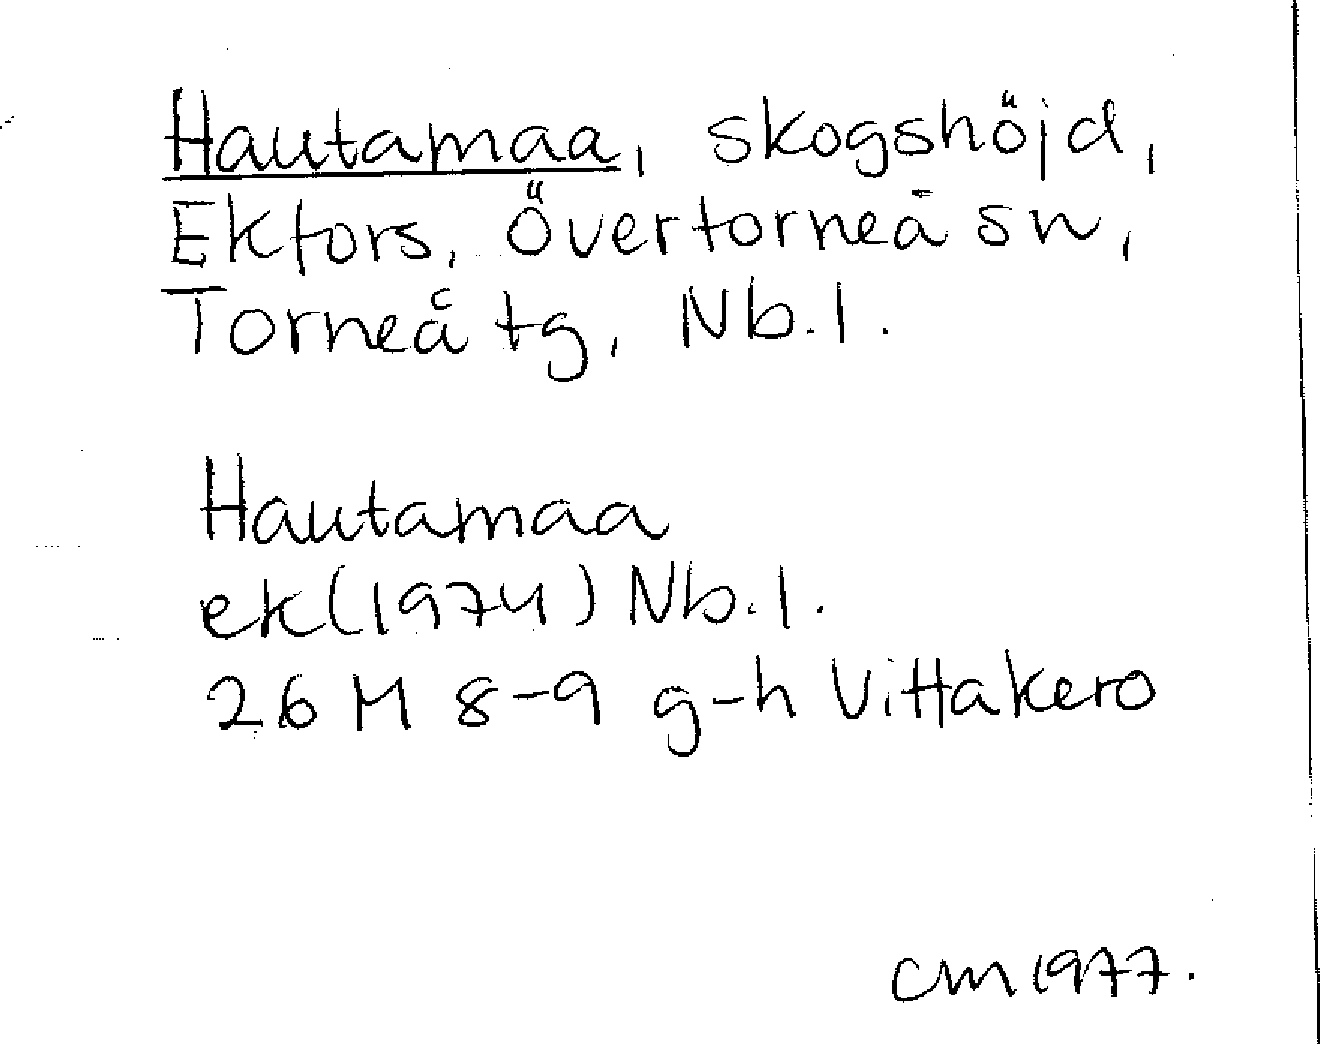 Hautamaa, skogshöjd,
Ekfors, Övertorneå sn,
Torneå tg, Nb.l.
Hautamaa
ek(1974) Nb.l.
26 M 8-9 g-h Vittakero
CM 1977.